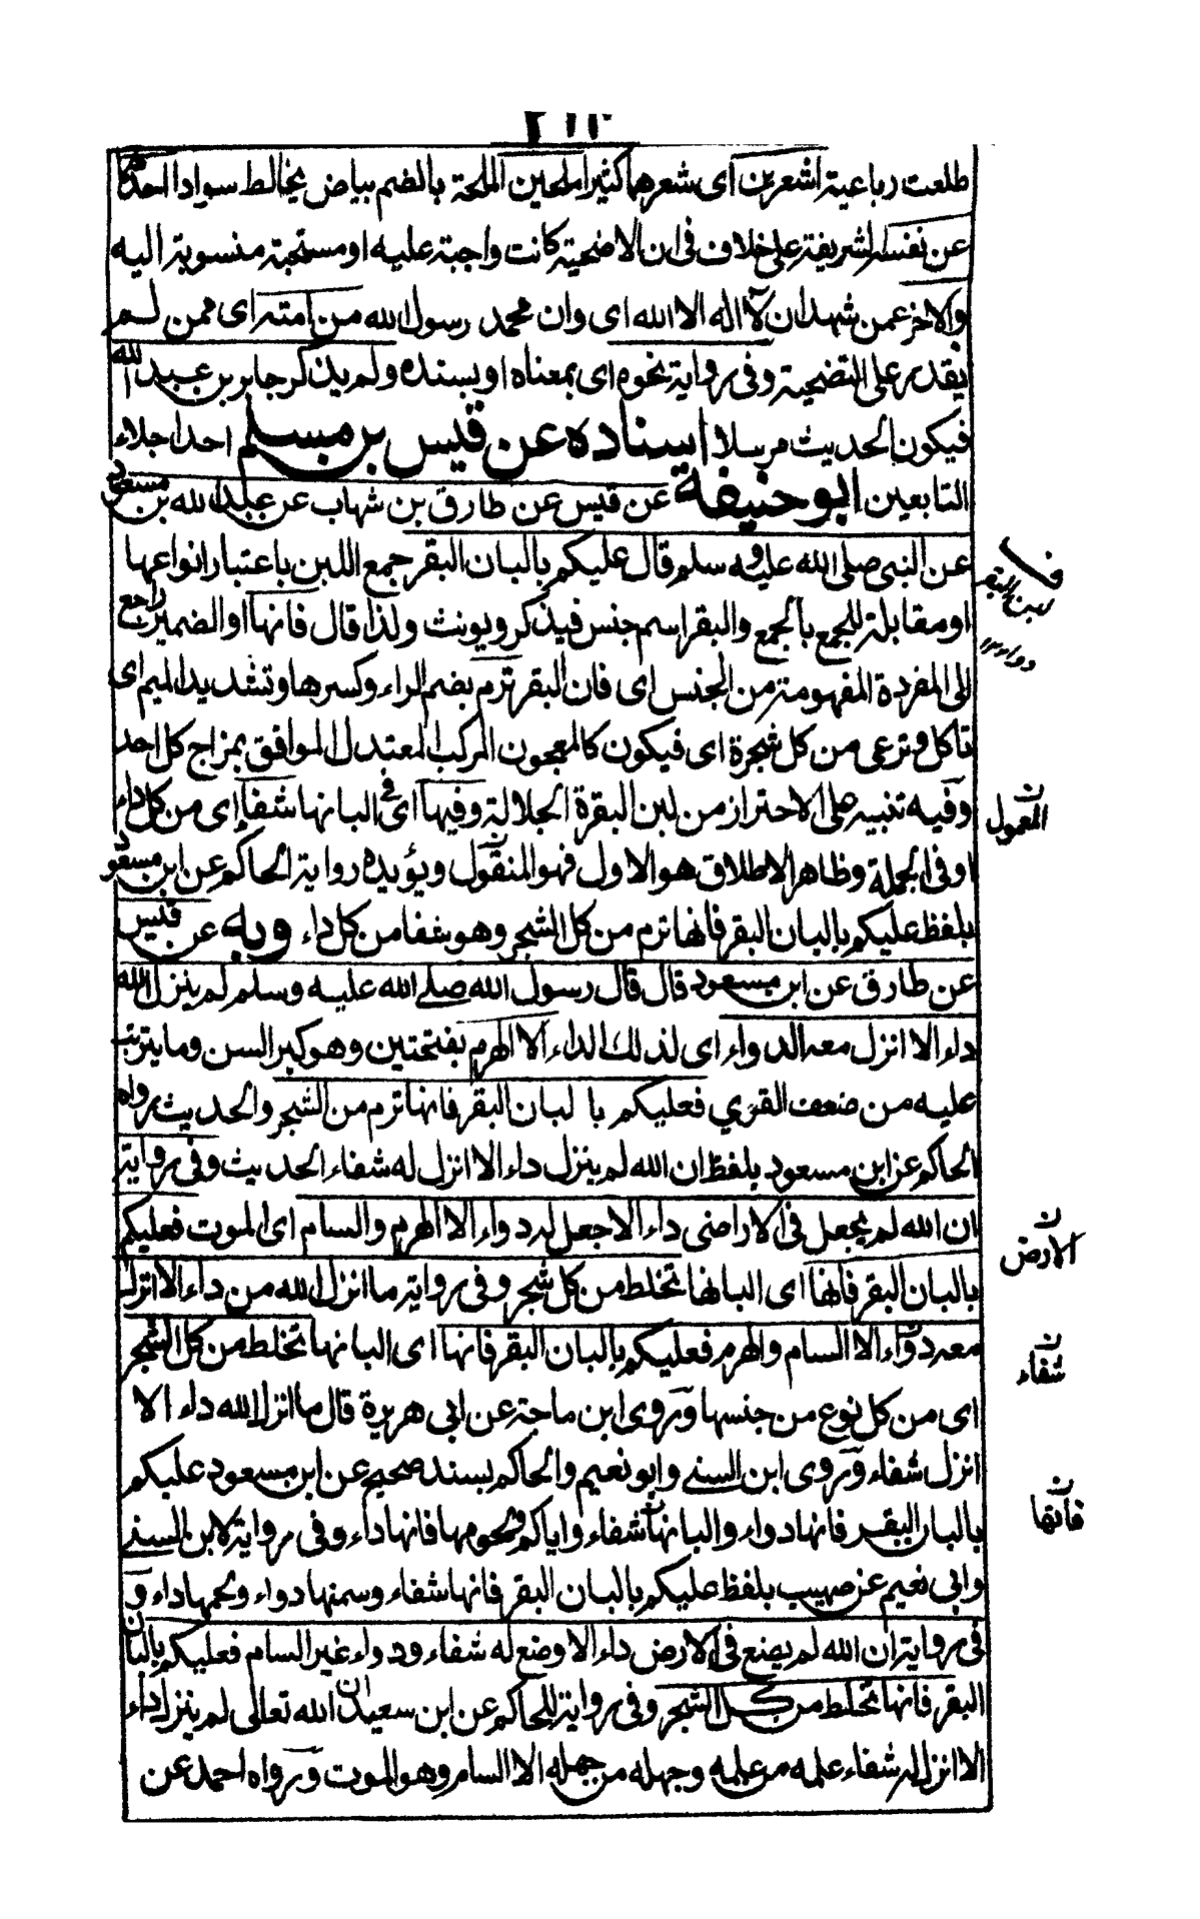 طلعت رباعیته اشعرین ای شعرهما کثیر املحین الملحة بالضم بیاض یخالط سوادا احدهما
عن نفسه الشریفة علی خلاف فی ان الاضحیة کانت واجبة علیه او مستحبة منسوبة الیه
والاخر عمن شهد ان لا اله الا الله ای وان محمد رسول الله من امته ای ممن لم
یقدر علی التضحیة وفی روایة نحوه ای بمعناه او بسنده ولم یذکر جابر بن عبد الله
فیکون الحدیث مرسلا اسناده عن قیس بن مسلم احد اجلاء
التابعین ابو حنیفة عن قیس عن طارق بن شهاب عن عبد الله بن مسعود
عن النبی صلی الله علیه وسلم قال علیکم بالبان البقر جمع اللبن باعتبار انواعها
او مقابلة للجمع بالجمع والبقر اسم جنس فیذکر ویونث ولذا قال فانها او الضمیر راجع
الی المفردة المفهومة من الجنس ای فان البقر ترم بضم الراء وکسرها وتشدید المیم ای
تاکل وترعی من کل شجرة ای فیکون کالمعجون المرکب المعتدل الموافق بمزاج کل احد
وفیه تنبیه علی الاحتراز من لبن البقرة الجلالة وفیها ای فی البانها شفاء ای من کل داء
او فی الجملة وظاهر الاطلاق هو الاول فهو المنقول ویؤیده روایة الحاکم عن ابن مسعود
بلفظ علیکم بالبان البقر فانها ترم من کل الشجر وهو شفا من کل داء وبه عن قیس
عن طارق عن ابن مسعود قال قال رسول الله صلے الله علیه وسلم لم ینزل الله
داء الا انزل معه الدواء ای لذلك الداء الا الهرم بفتحتین وهو کبر السن وما یترتب
علیه من ضعف القوی فعلیکم بالبان البقر فانها ترم من الشجر والحدیث رواه
الحاکم عن ابن مسعود بلفظ ان الله لم ینزل داء الا انزل له شفاء الحدیث وفی روایة
ان الله لم یجعل فی الاراضی داء الا جعل له دواء الا الهرم والسام ای الموت فعلیکم
بالبان البقر فانها ای البانها تخلط من کل شجر وفی روایة ما انزل الله من داء الا انزل
معه دواء الا السام والهرم فعلیکم بالبان البقر فانها ای البانها تخلط من کل الشجر
ای من کل نوع من جنسها وروی ابن ماجة عن ابی هریرة قال ما انزل الله داء الا
انزل شفاء وروی ابن السنے وابو نعیم والحاکم بسند صحیح عن ابن مسعود علیکم
بالبان البقر فانها دواء والبانها شفاء وایاکم ولحومها فانها داء وفی روایة لابن السنے
وابی نعیم عن صهیب بلفظ علیکم بالبان البقر فانها شفاء وسمنها دواء ولحمها داء و
فی روایة ان الله لم یضع فی الارض داء الا وضع له شفاء ودواء غیر السام فعلیکم بالبان
البقر فانها تخلط من کل الشجر وفی روایة للحاکم عن ابن سعید ان الله تعالی لم ینزل داء
الا انزل له شفاء علمه من علمه وجهله من جهله الا السام وهو الموت ورواه احمد عن
لبن البقر
ن
المعمول
ن
الارض
ن
شفاء
ن
فانها